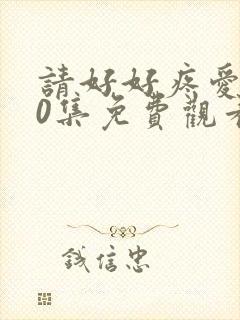 請好好疼愛
0集免費觀看
錢信忠